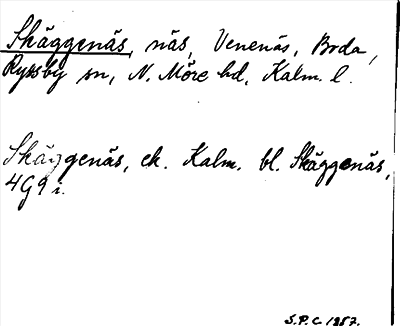 Skäggenäs, näs, Venenäs, Boda,
Ryssby sn, N. Möre hd, Kalm. l.
Skäggenäs, ek. Kalm. bl. Skäggenäs,
4G9i.
S.P.C. 1957.